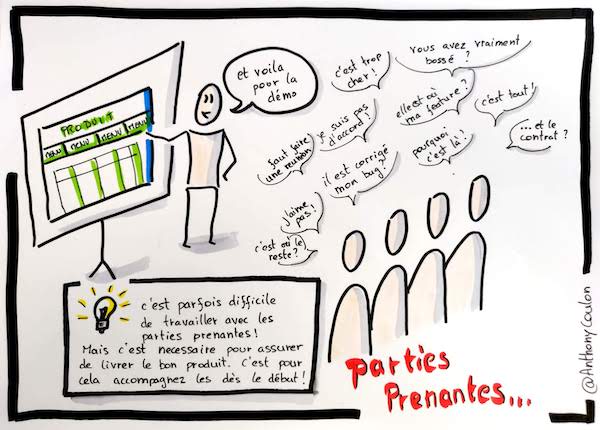 PRODUIT
MENU MENU MENU MENU
et voila
pour la
démo
c'est trop
cher !
vous avez vraiment
bossé ?
je suis pas
d'accord !
elle est où
ma feature ?
c'est tout !
... et le
contrat ?
faut faire
une réunion
il est corrigé
mon bug ?
pourquoi
c'est là !
j'aime
pas !
c'est où le
reste ?
c'est parfois difficile
de travailler avec les
parties prenantes !
Mais c'est necessaire pour assurer
de livrer le bon produit. C'est pour
cela accompagnez les dès le début !
Parties
Prenantes...
@AnthonyCoulon